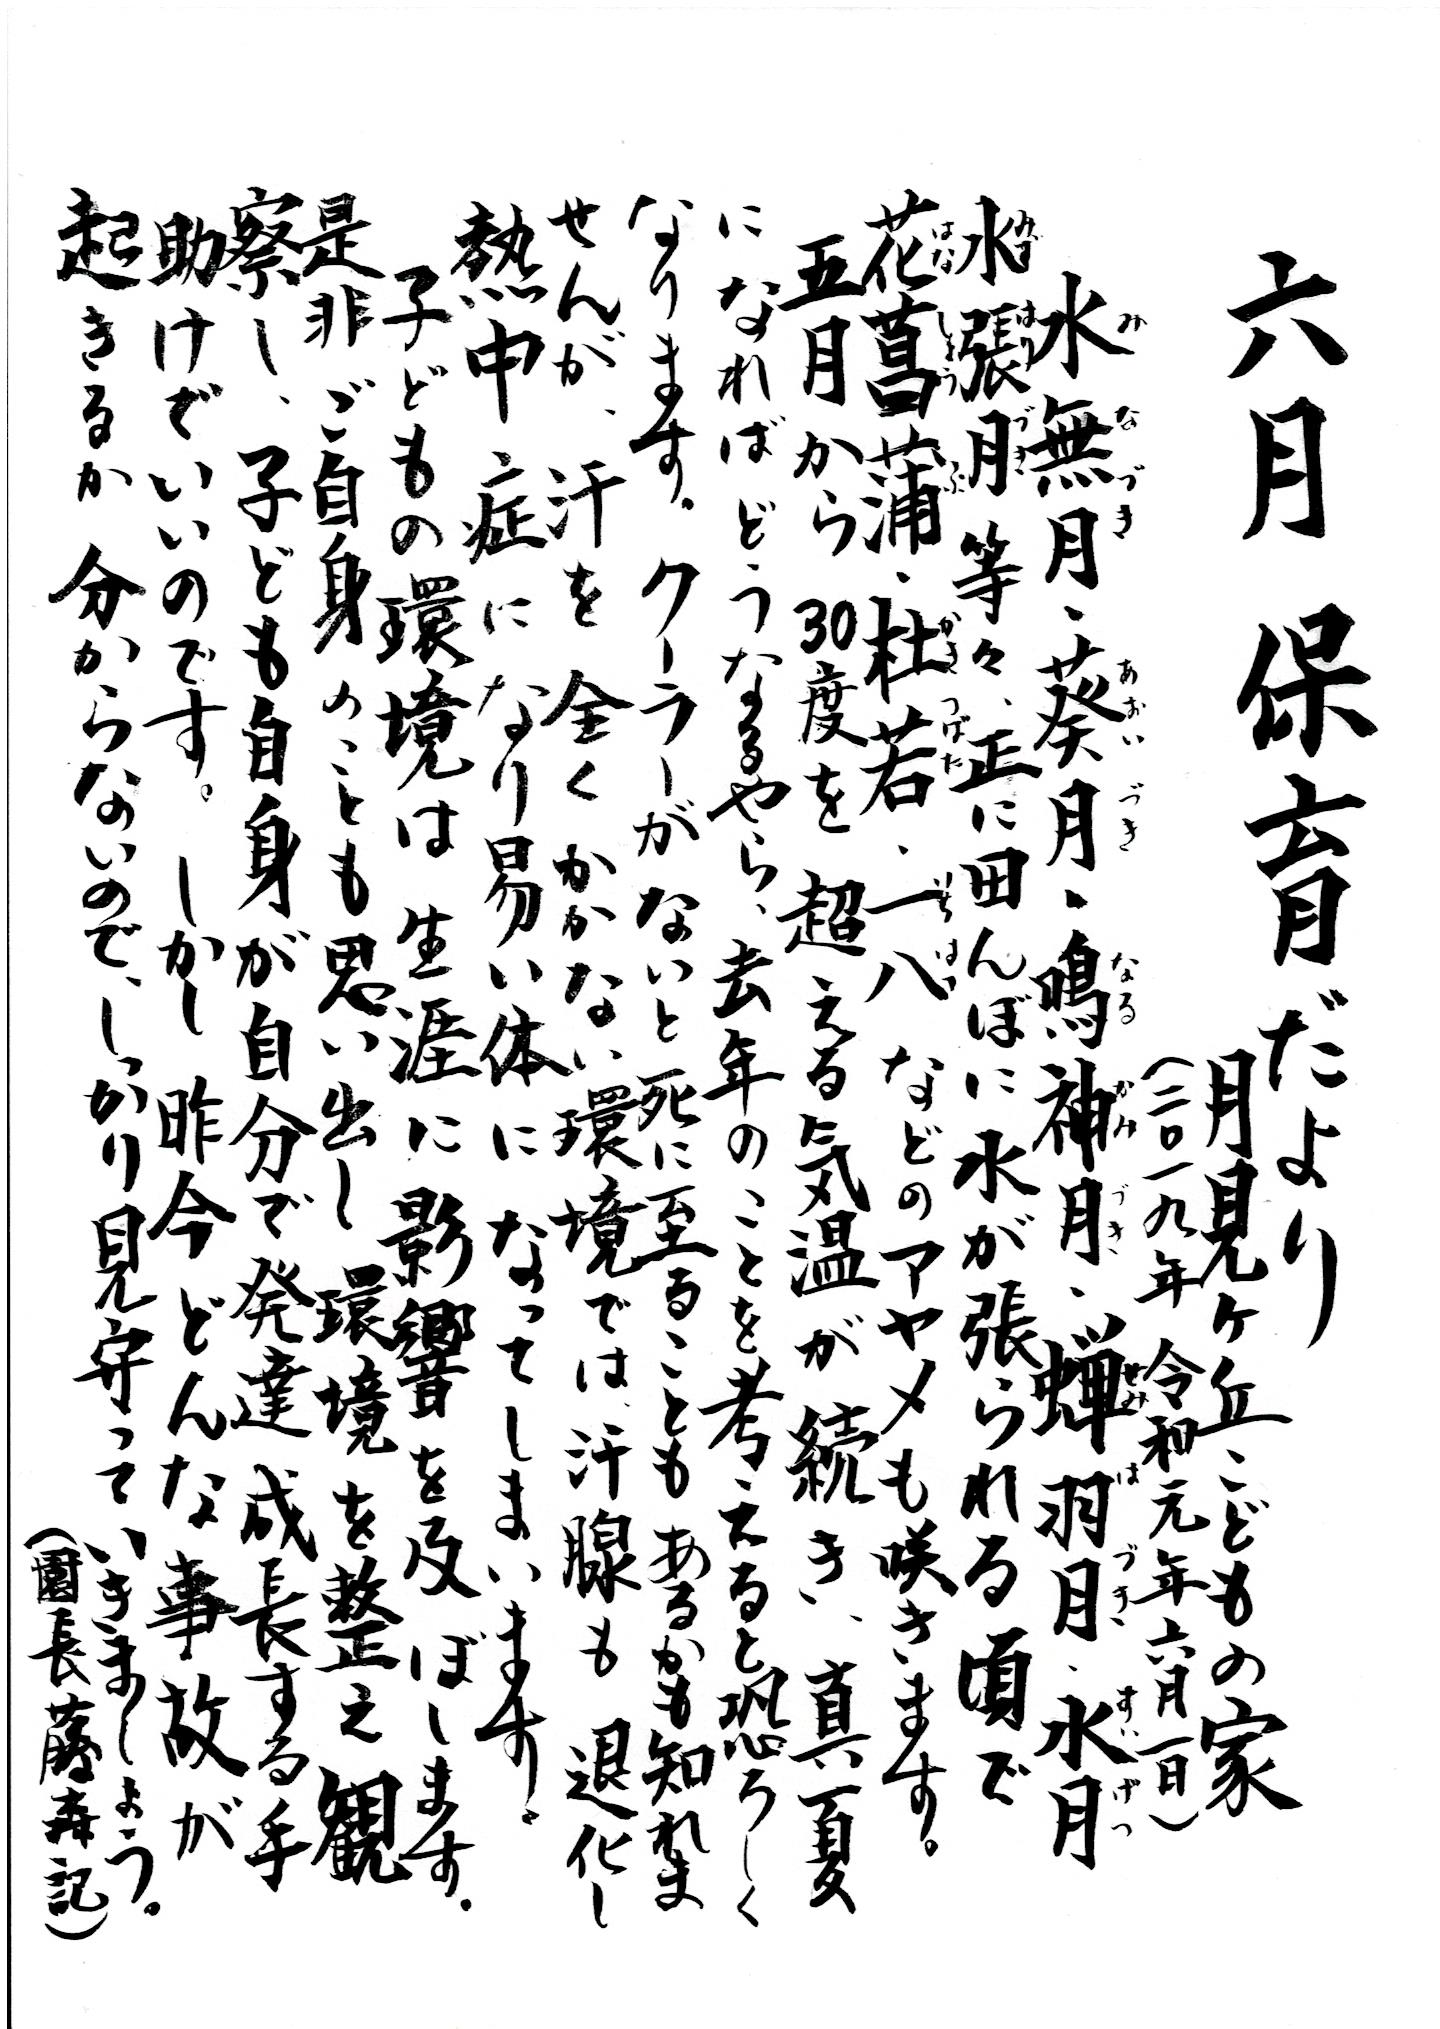 六月 保育だより
月見ヶ丘こどもの家
(二〇一九年 令和元年六月一日)
水無月・葵月・鳴神月・蝉羽月・水月
水張月等々、正に田んぼに水が張られる頃で
花菖蒲・杜若・一八などのアヤメも咲きます。
五月から30度を超える気温が続き、真夏
になればどうなるやら、去年のことを考えると恐ろしく
なります。クーラーがないと死に至ることもあるかも知れま
せんが、汗を全くかかない環境では汗腺も退化し
熱中症になり易い体になってしまいます。
子どもの環境は生涯に影響を及ぼします。
是非ご自身のことも思い出し環境を整え観
察し、子ども自身が自分で発達成長する手
助けでいいのです。しかし昨今どんな事故が
起きるか分からないので、しっかり見守っていきましょう。
(園長 藤森記)